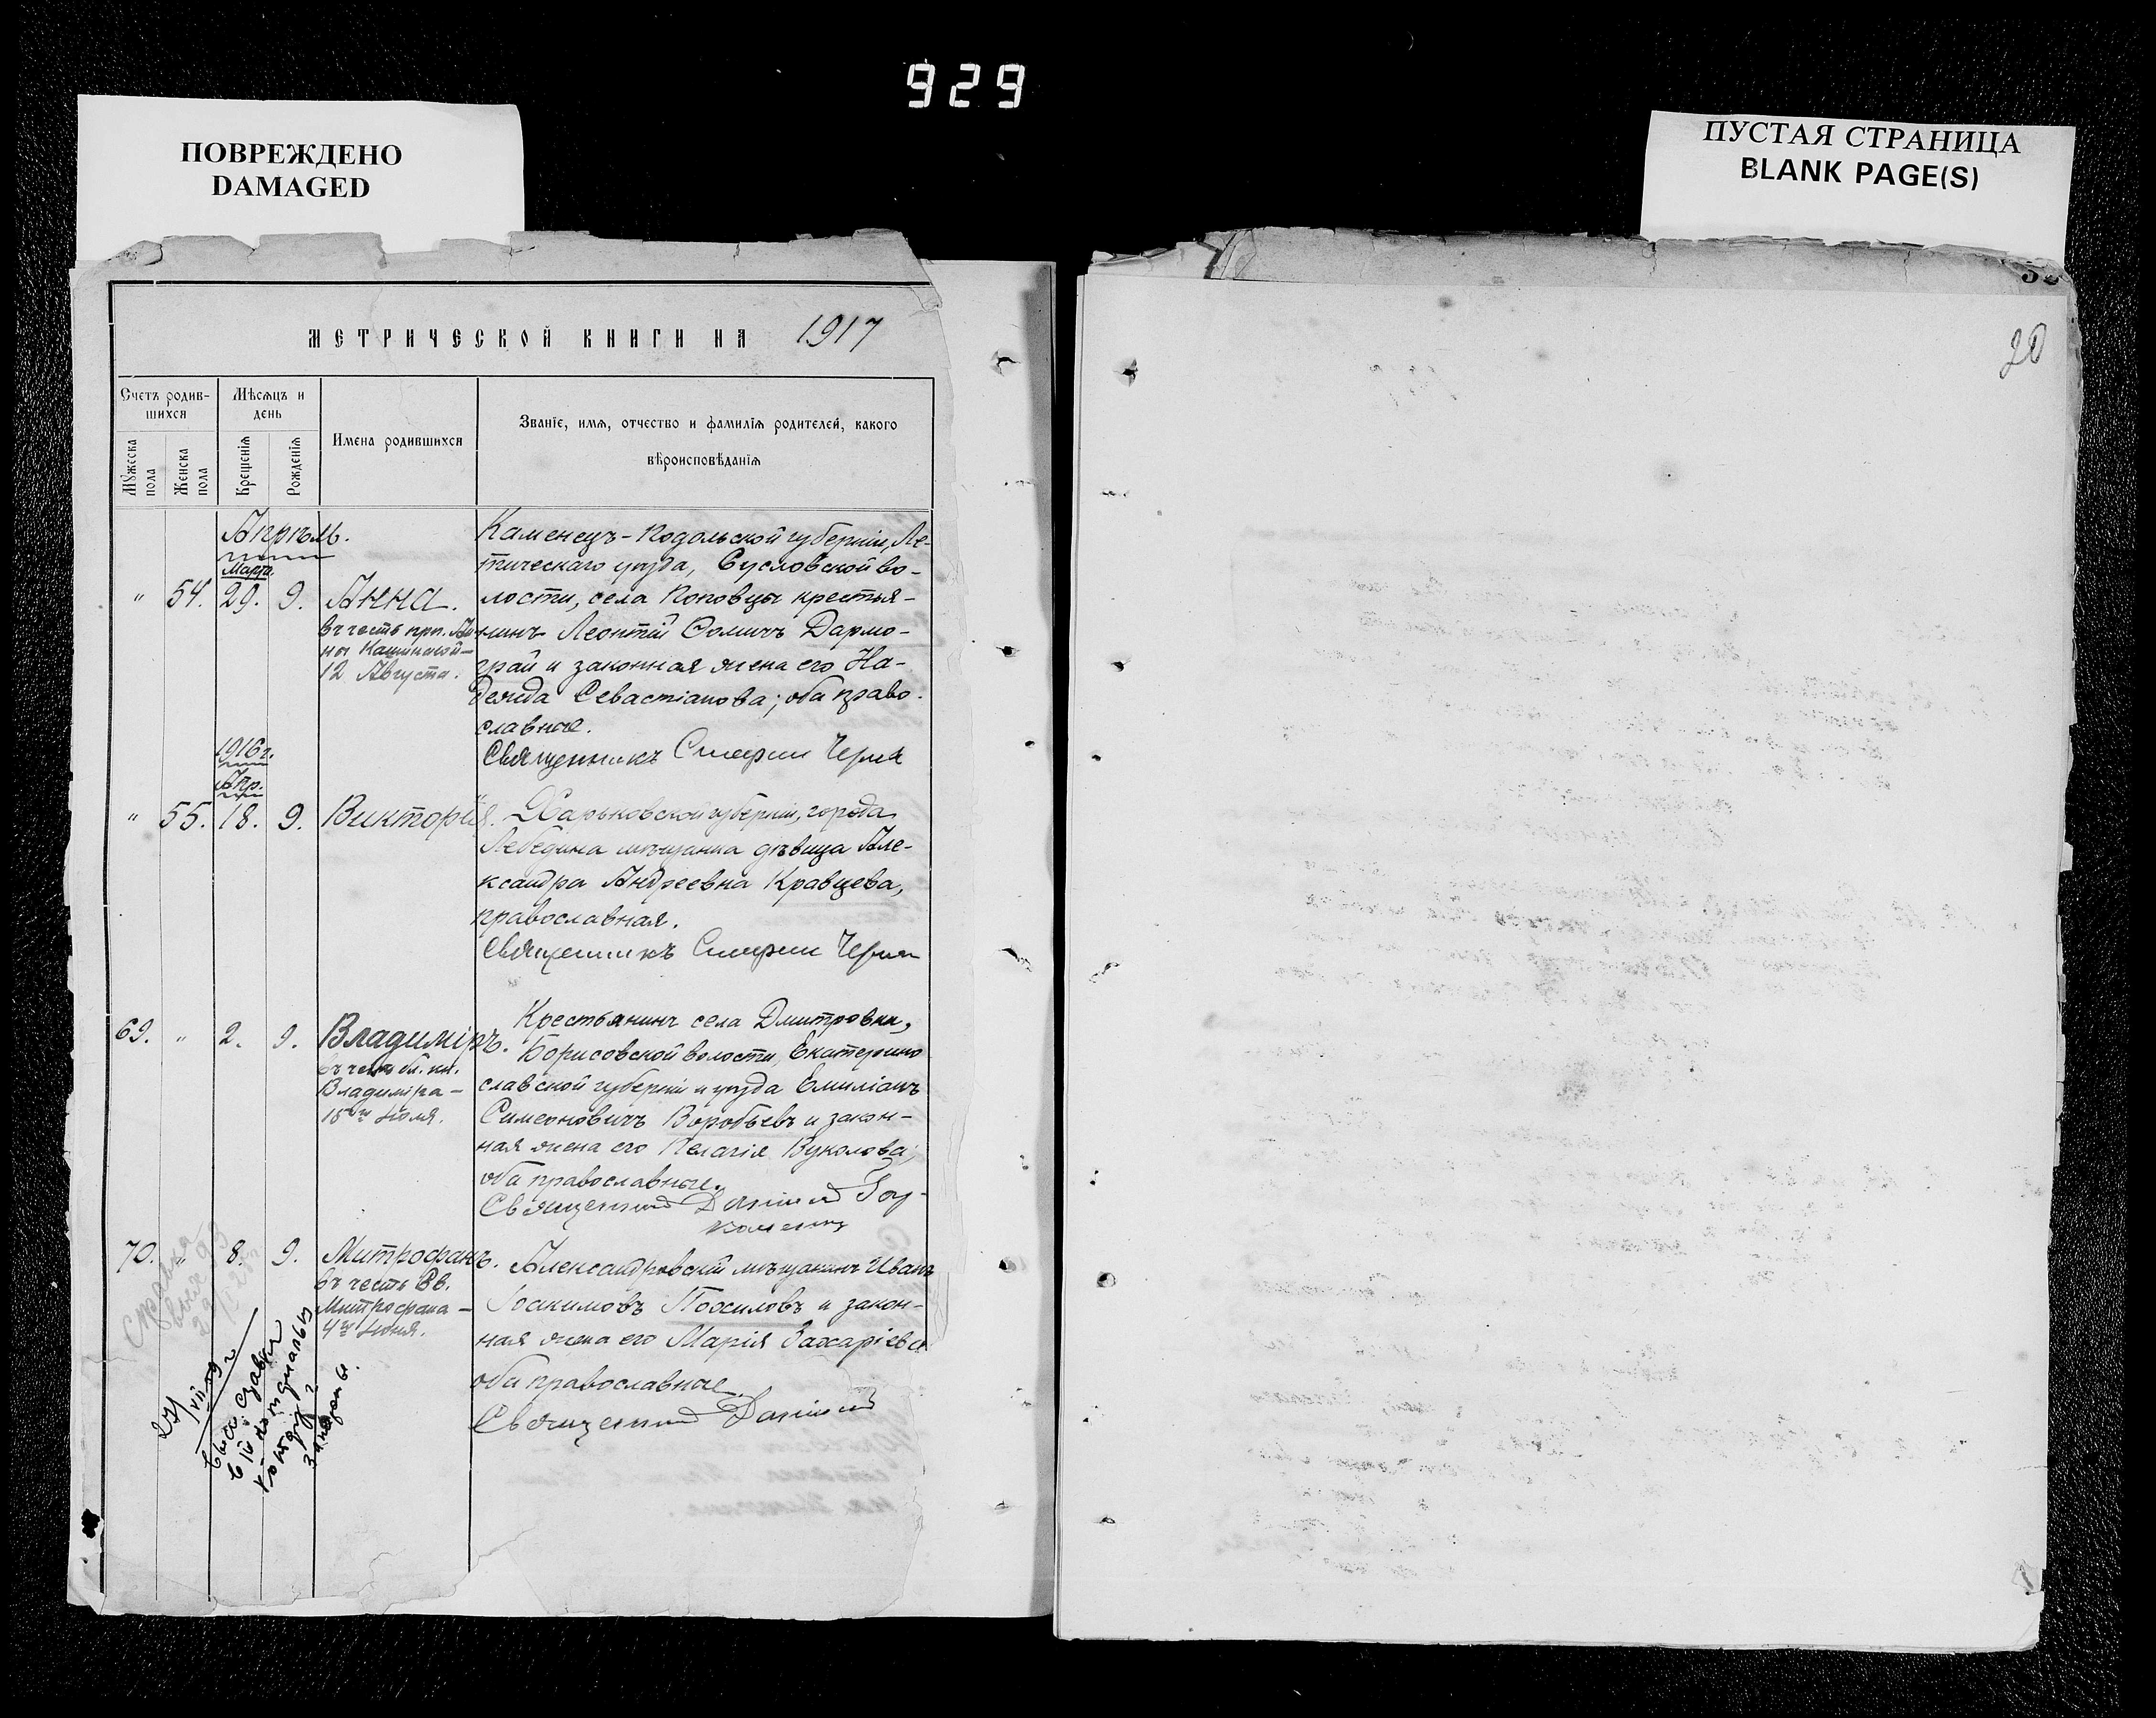 929
ПОВРЕЖДЕНО
DAMAGED
ПУСТАЯ СТРАНИЦА
BLANK PAGE(S)
20
МЕТРИЧЕСКОЙ КНИГИ НА 1917
Счетъ родив-
шихся
Мѣсяцъ и
день
Мужеска
пола
Женска
пола
Крещенія
Рожденія
Имена родившихся
Званіе, имя, отчество и фамилія родителей, какого
вѣроисповѣданія
Апрѣль.
Марта.
" 54. 29. 9. Анна.
въ честь прп. Ан-
ны Кашинской-
12 Августа.
Каменецъ-Подольской губерніи, Ле-
тическаго уѣзда, Сусловской во-
лости, села Поповцы крестья-
нинъ Леонтій Ѳомичъ Дармо-
грай и законная жена его На-
дежда Севастіанова; оба право-
славные.
Священникъ
1916 г.
Апр.
" 55. 18. 9. Викторія.
Харьковской губерніи, города
Лебедина мѣщанка дѣвица Але-
ксандра Андреевна Кравцева,
православная.
Священникъ
69. " 2. 9. Владиміръ.
въ честь бл. кн.
Владиміра-
15го Іюля.
Крестьянинъ села Дмитровки,
Борисовской волости, Екатерино
славской губерніи и уѣзда Емиліанъ
Симеоновичъ Воробьевъ и закон-
ная жена его Пелагія Вуколова;
оба православные.
Священникъ Даніилъ
70. " 8. 9. Митрофанъ.
въ честь Св.
Митрофана-
4го Іюня.
Александровскій мѣщанинъ Иванъ
Іоакимовъ Похиловъ и закон-
ная жена его Марія Захаріева
оба православные.
Священникъ Даніилъ
Справка